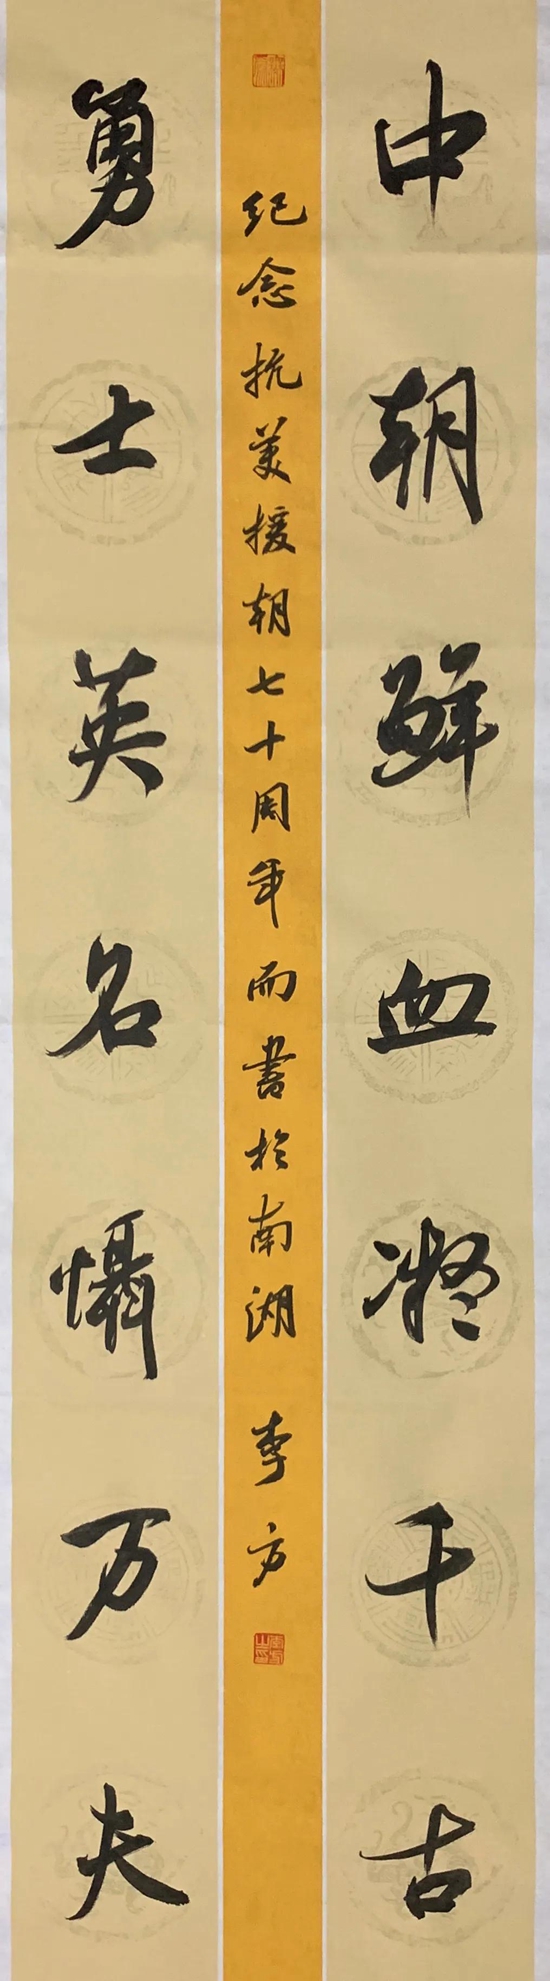 中朝鲜血凝千古
纪念抗美援朝七十周年而书於南湖 李方
勇士英名慑万夫